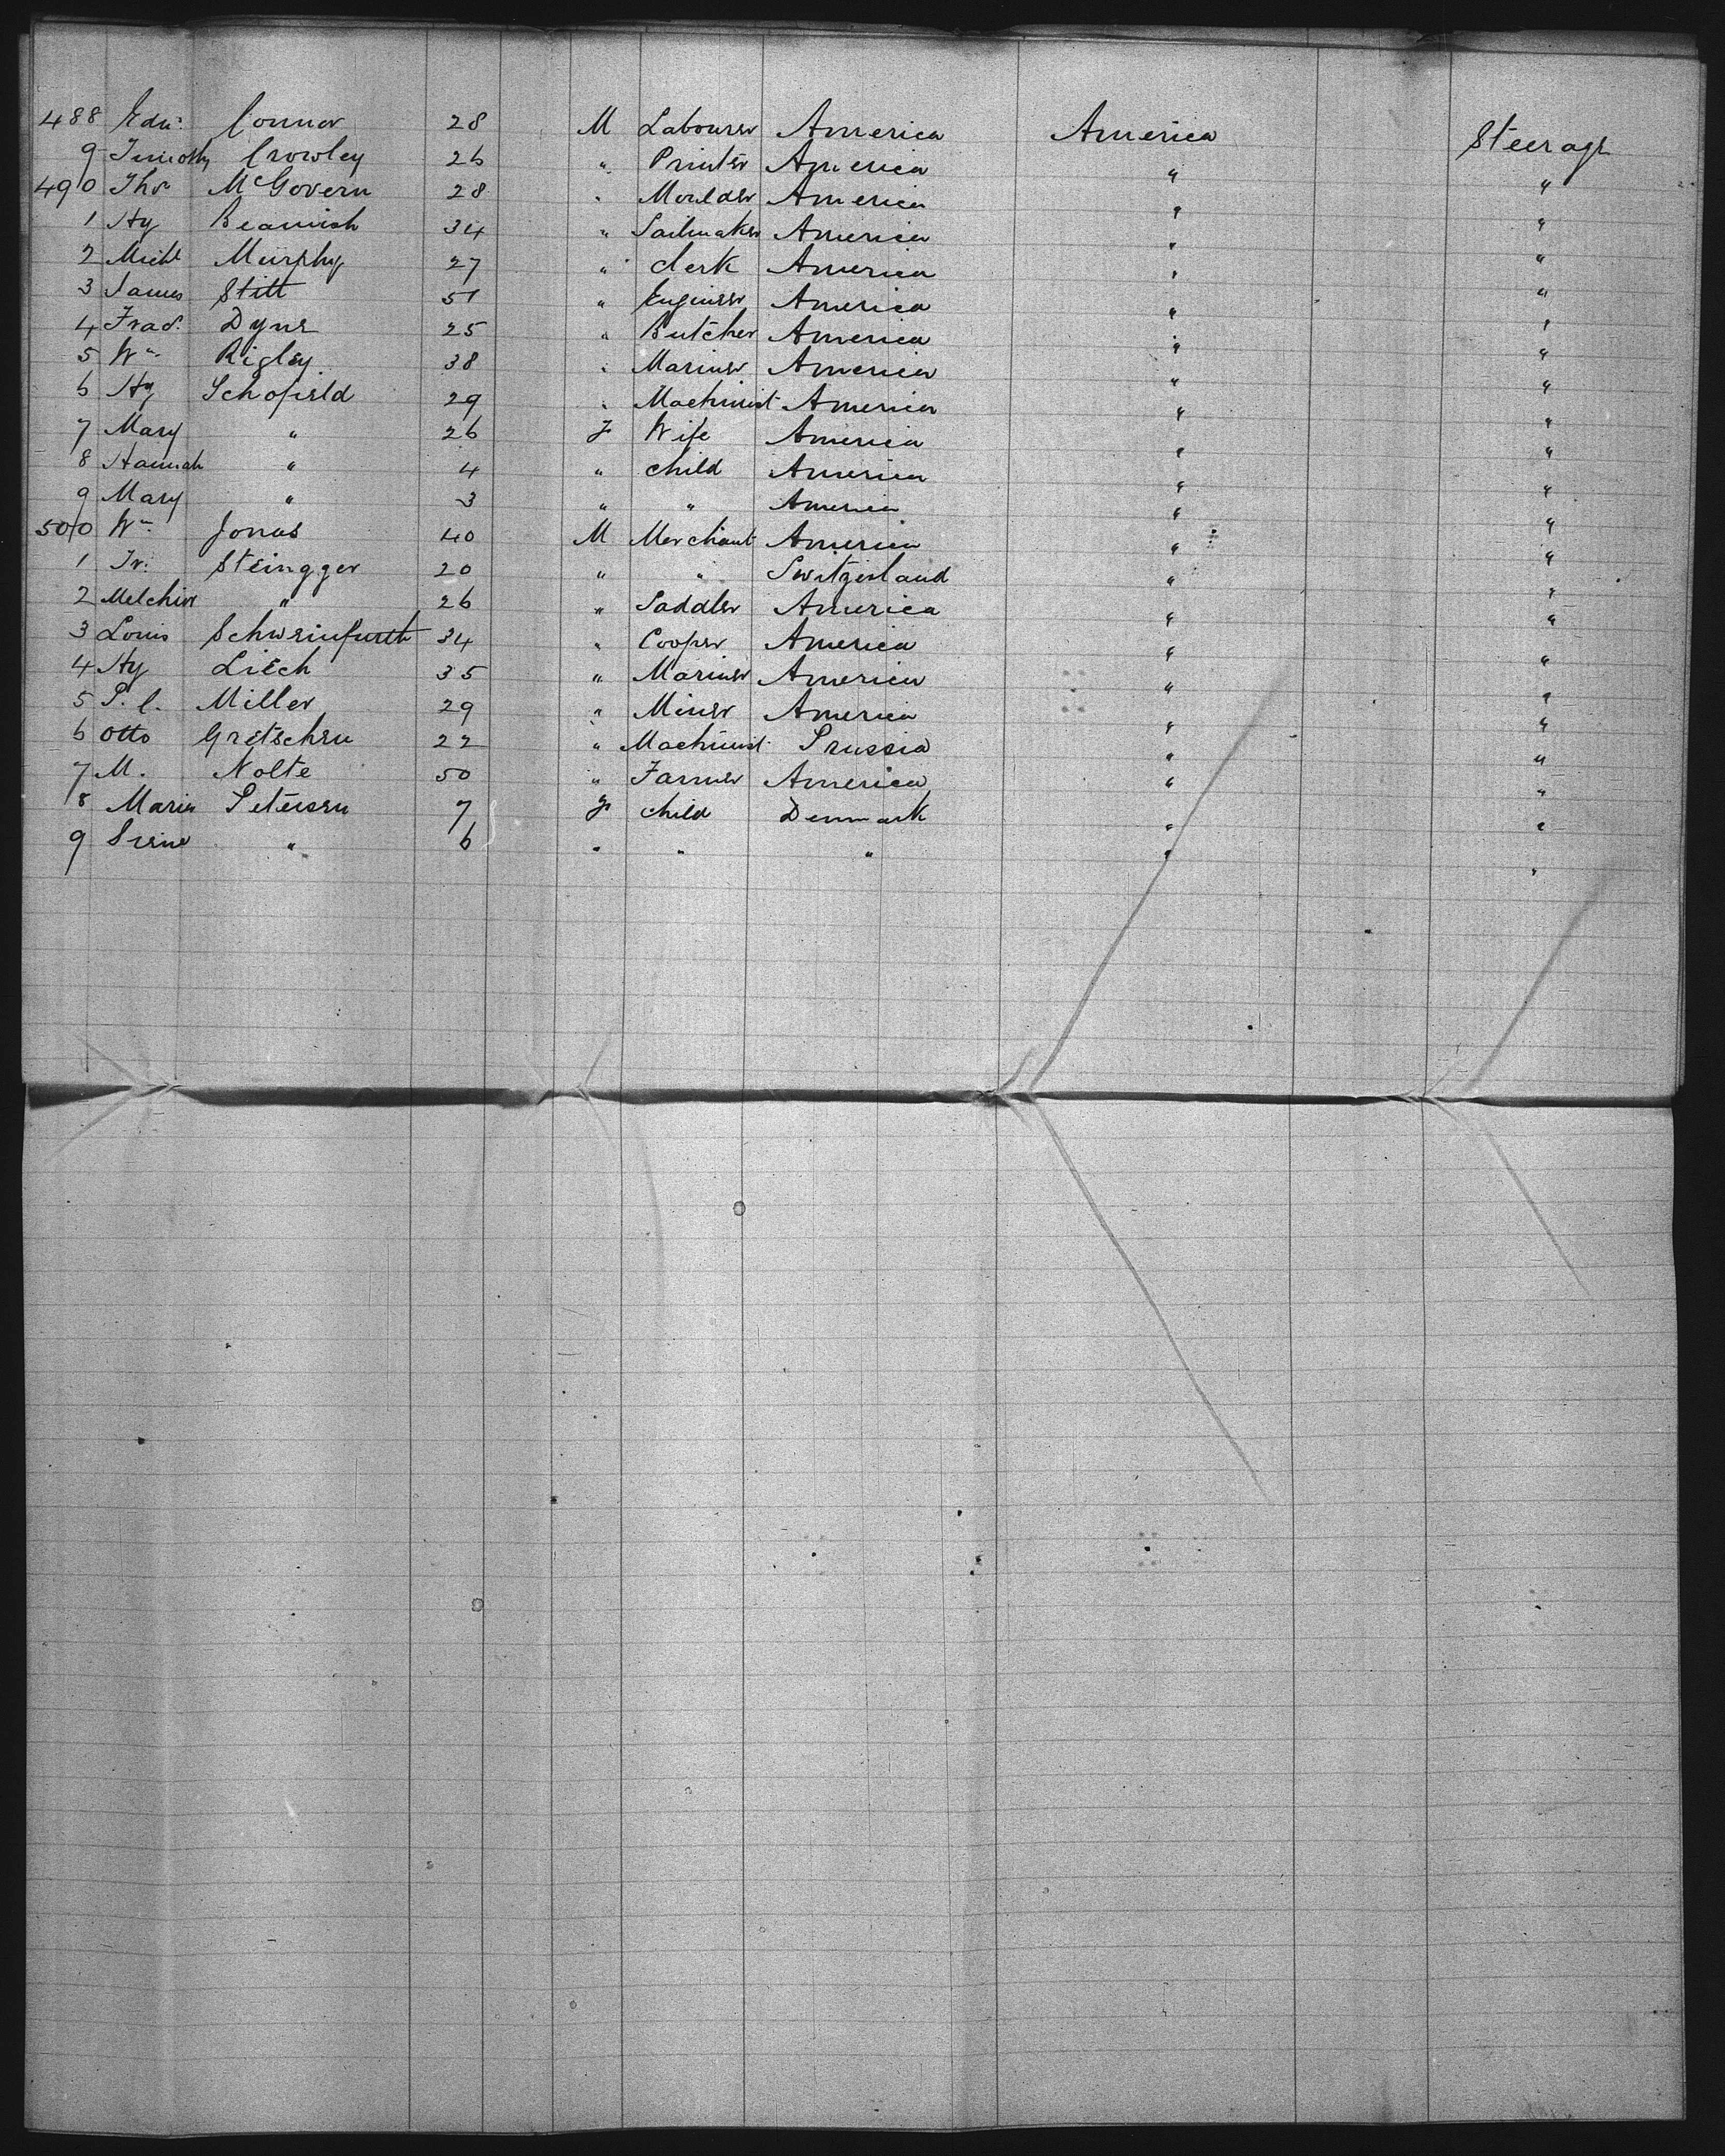 488 Edw. Connor 28 M Labourer America America Steerage
9 Timothy Crowley 26 " Printer America " "
490 Thos McGovern 28 " Moulder America " "
1 Hy Beamish 34 " Sailmaker America " "
2 Michl Murphy 27 " clerk America " "
3 James Stitt 51 " Engineer America " "
4 Fred. Dyne 25 " Butcher America " "
5 Wm Rigley 38 " Mariner America " "
6 Hy Schofield 29 " Machinist America " "
7 Mary " 26 F Wife America " "
8 Hannah " 4 " child America " "
9 Mary " 3 " " America " "
500 Wm Jonas 40 M Merchant America " "
1 Steingger 20 " " Switzerland " "
2 Melchior " 26 " Saddler America " "
3 Louis Schweinfurth 34 " Cooper America " "
4 Hy Liech 35 " Mariner America " "
5 P. C. Miller 29 " Miner America " "
6 Otto Gretschen 22 " Machinist Prussia " "
7 M. Nolte 50 " Farmer America " "
8 Marie Petersen 7 F child Denmark " "
9 " 6 " " " " "